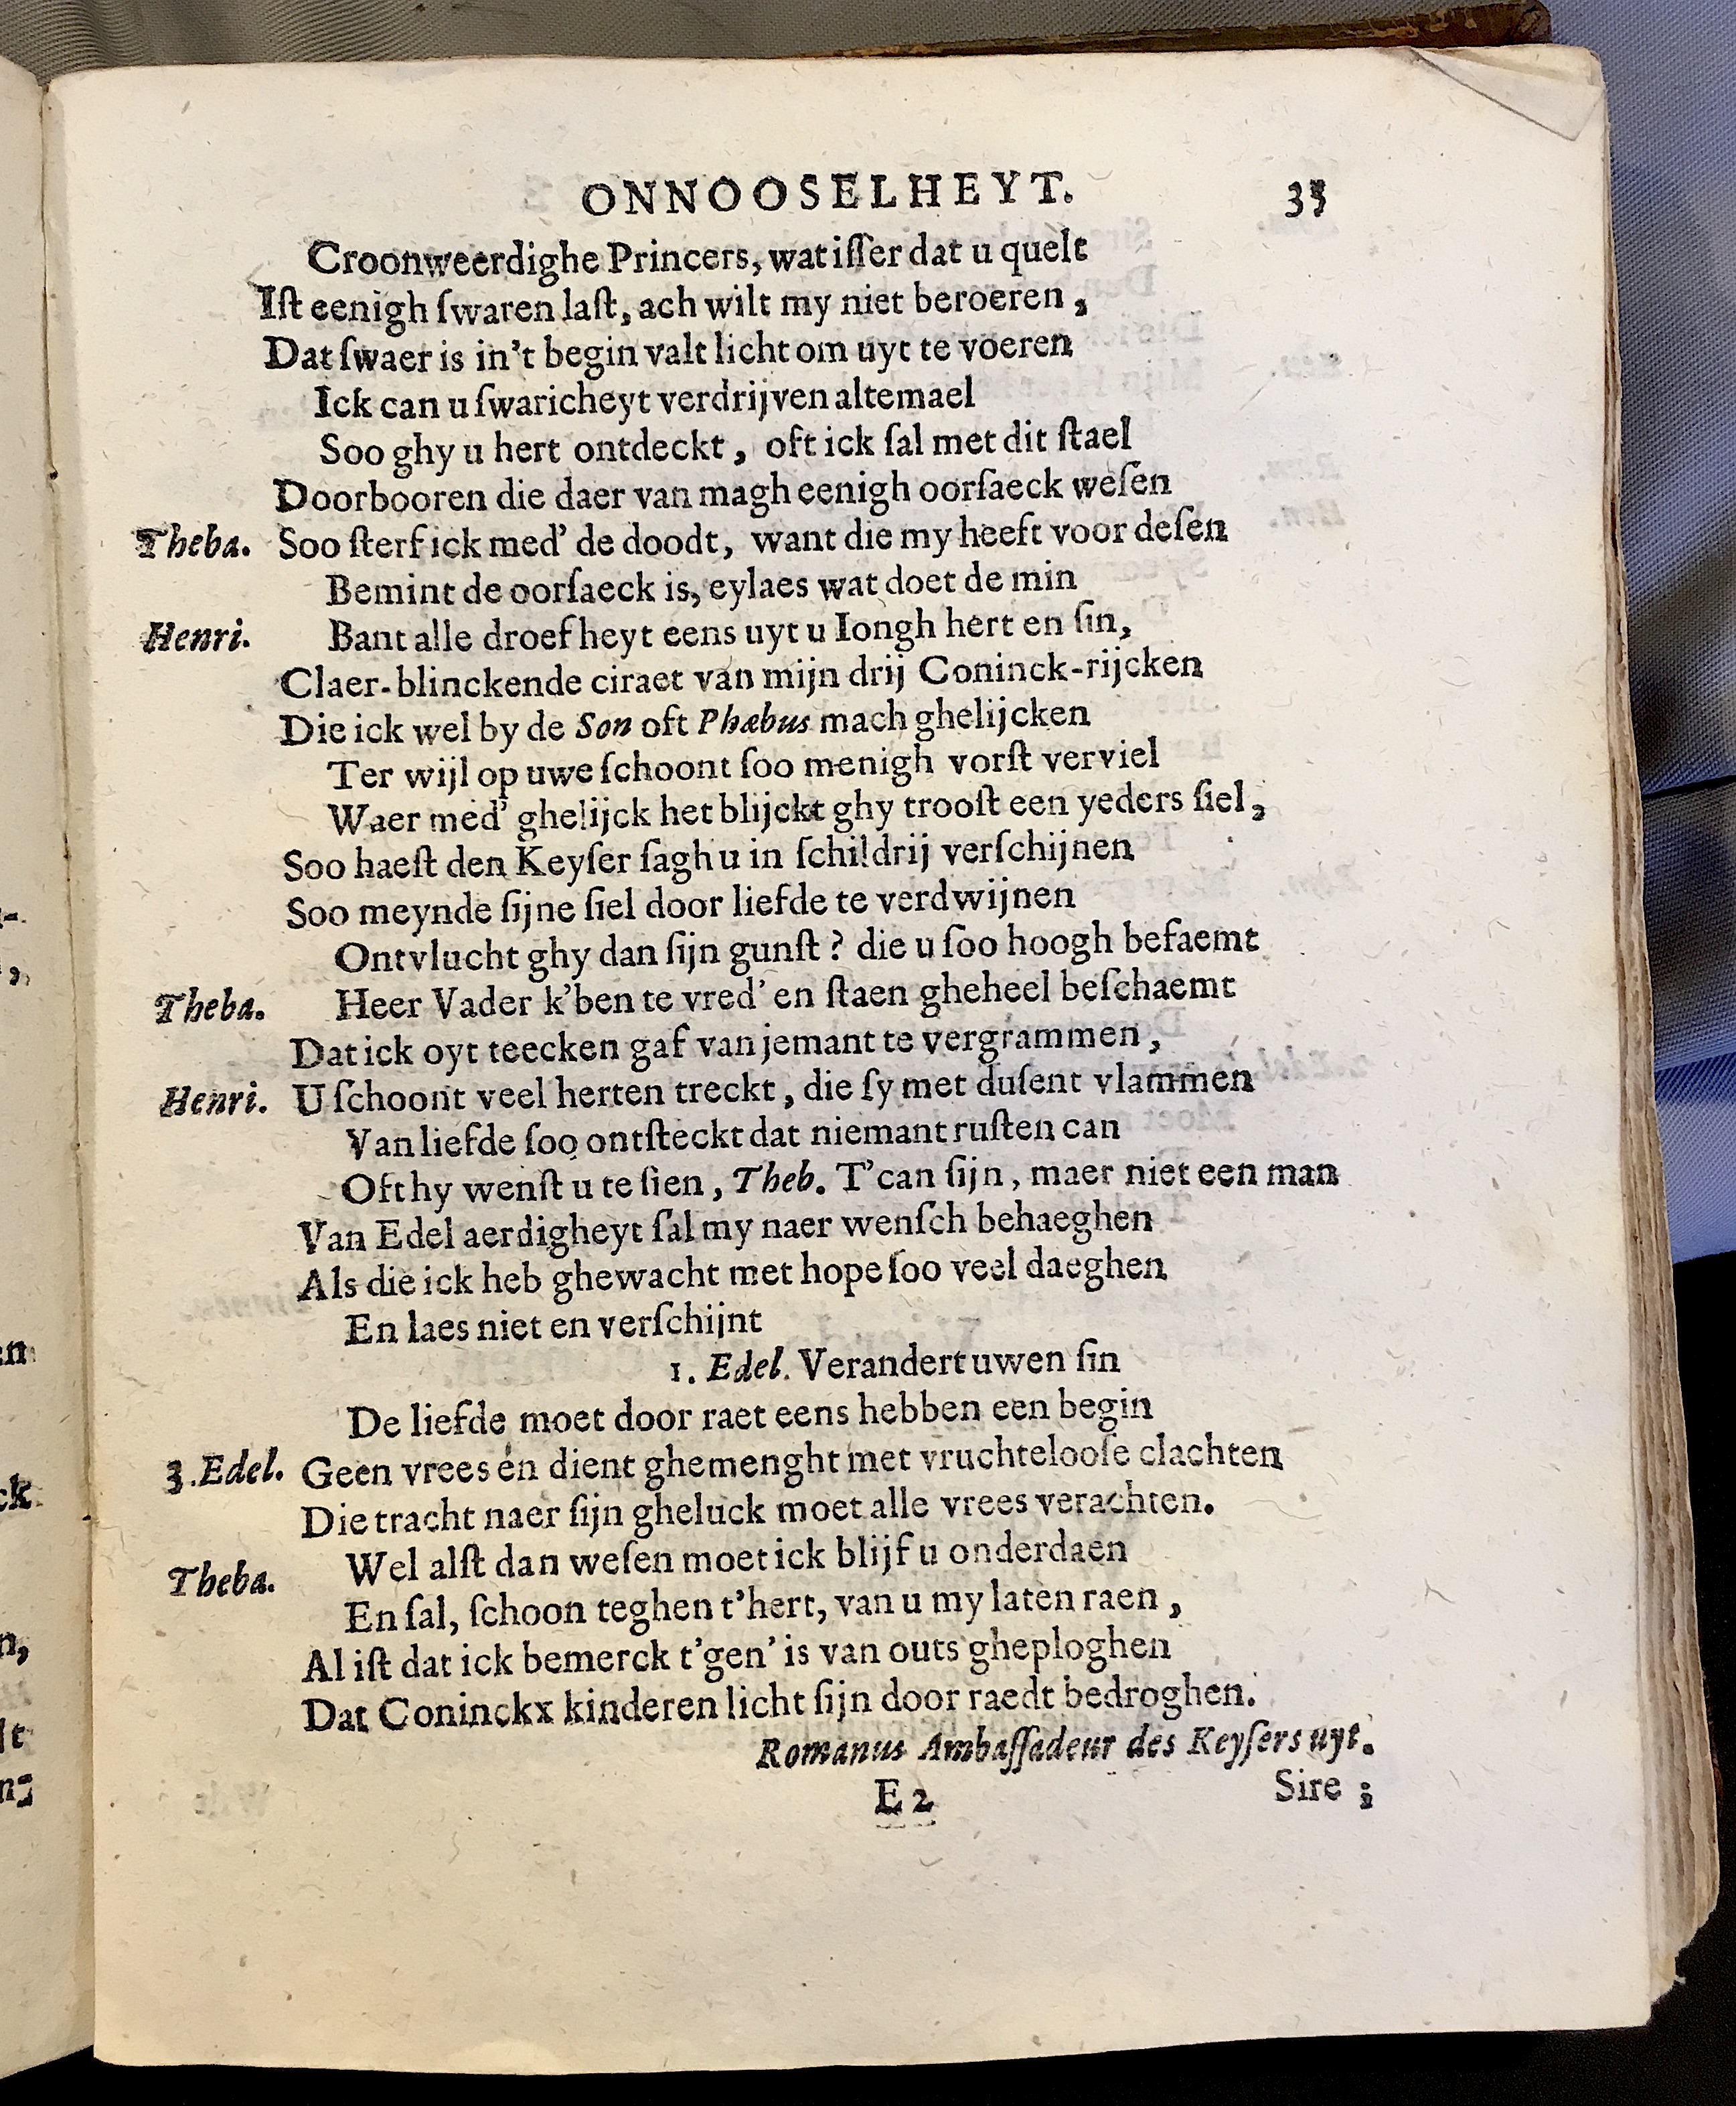 ONNOOSELHEYT. 35
Croonweerdighe Princers, wat isser dat u quelt
Ist eenigh swaren last, ach wilt my niet beroeren,
Dat swaer is in't begin valt licht om uyt te voeren
Ick can u swaricheyt verdrijven altemael
Soo ghy u hert ontdeckt, oft ick sal met dit stael
Doorbooren die daer van magh eenigh oorsaeck wesen
Theba. Soo sterf ick med' de doodt, want die my heeft voor desen
Bemint de oorsaeck is, eylaes wat doet de min
Henri. Bant alle droefheyt eens uyt u Iongh hert en sin,
Claer-blinckende ciraet van mijn drij Coninck-rijcken
Die ick wel by de Son oft Phæbus mach ghelijcken
Ter wijl op uwe schoont soo menigh vorst verviel
Waer med' ghelijck het blijckt ghy troost een yeders siel,
Soo haest den Keyser sagh u in schildrij verschijnen
Soo meynde sijne siel door liefde te verdwijnen
Ontvlucht ghy dan sijn gunst? die u soo hoogh befaemt
Theba. Heer Vader k'ben te vred' en staen gheheel beschaemt
Dat ick oyt teecken gaf van jemant te vergrammen,
Henri. U schoont veel herten treckt, die sy met dusent vlammen
Van liefde soo ontsteckt dat niemant rusten can
Oft hy wenst u te sien, Theb. T'can sijn, maer niet een man
Van Edel aerdigheyt sal my naer wensch behaeghen
Als die ick heb ghewacht met hope soo veel daeghen
En laes niet en verschijnt
1. Edel. Verandert uwen sin
De liefde moet door raet eens hebben een begin
3. Edel. Geen vrees en dient ghemenght met vruchteloose clachten
Die tracht naer sijn gheluck moet alle vrees verachten.
Theba. Wel alst dan wesen moet ick blijf u onderdaen
En sal, schoon teghen t'hert, van u my laten raen,
Al ist dat ick bemerck t'gen' is van outs gheploghen
Dat Coninckx kinderen licht sijn door raedt bedroghen.
Romanus Ambassadeur des Keysers uyt.
E 2 Sire;